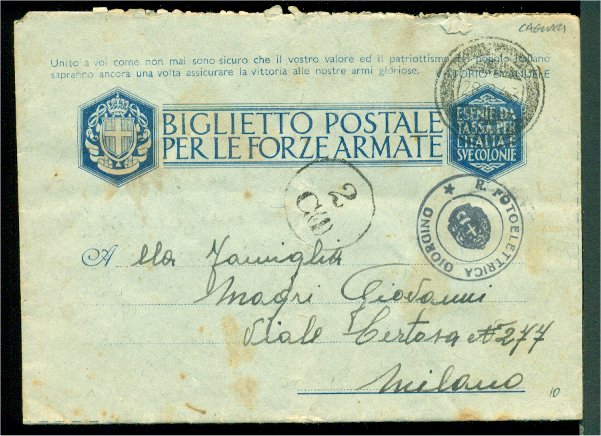 CAGLIARI
Unito a voi come non mai sono sicuro che il vostro valore ed il patriottismo del popolo italiano
sapranno ancora una volta assicurare la vittoria alle nostre armi gloriose. VITTORIO EMANUELE
BIGLIETTO POSTALE
PER LE FORZE ARMATE
ESENTE DA
TASSA PER
L'ITALIA E
SVE COLONIE
2
CS
★ R. FOTOELETTRICA GIORDINO
Alla Famiglia
Magri Giovanni
Viale Certosa N° 277
Milano
10